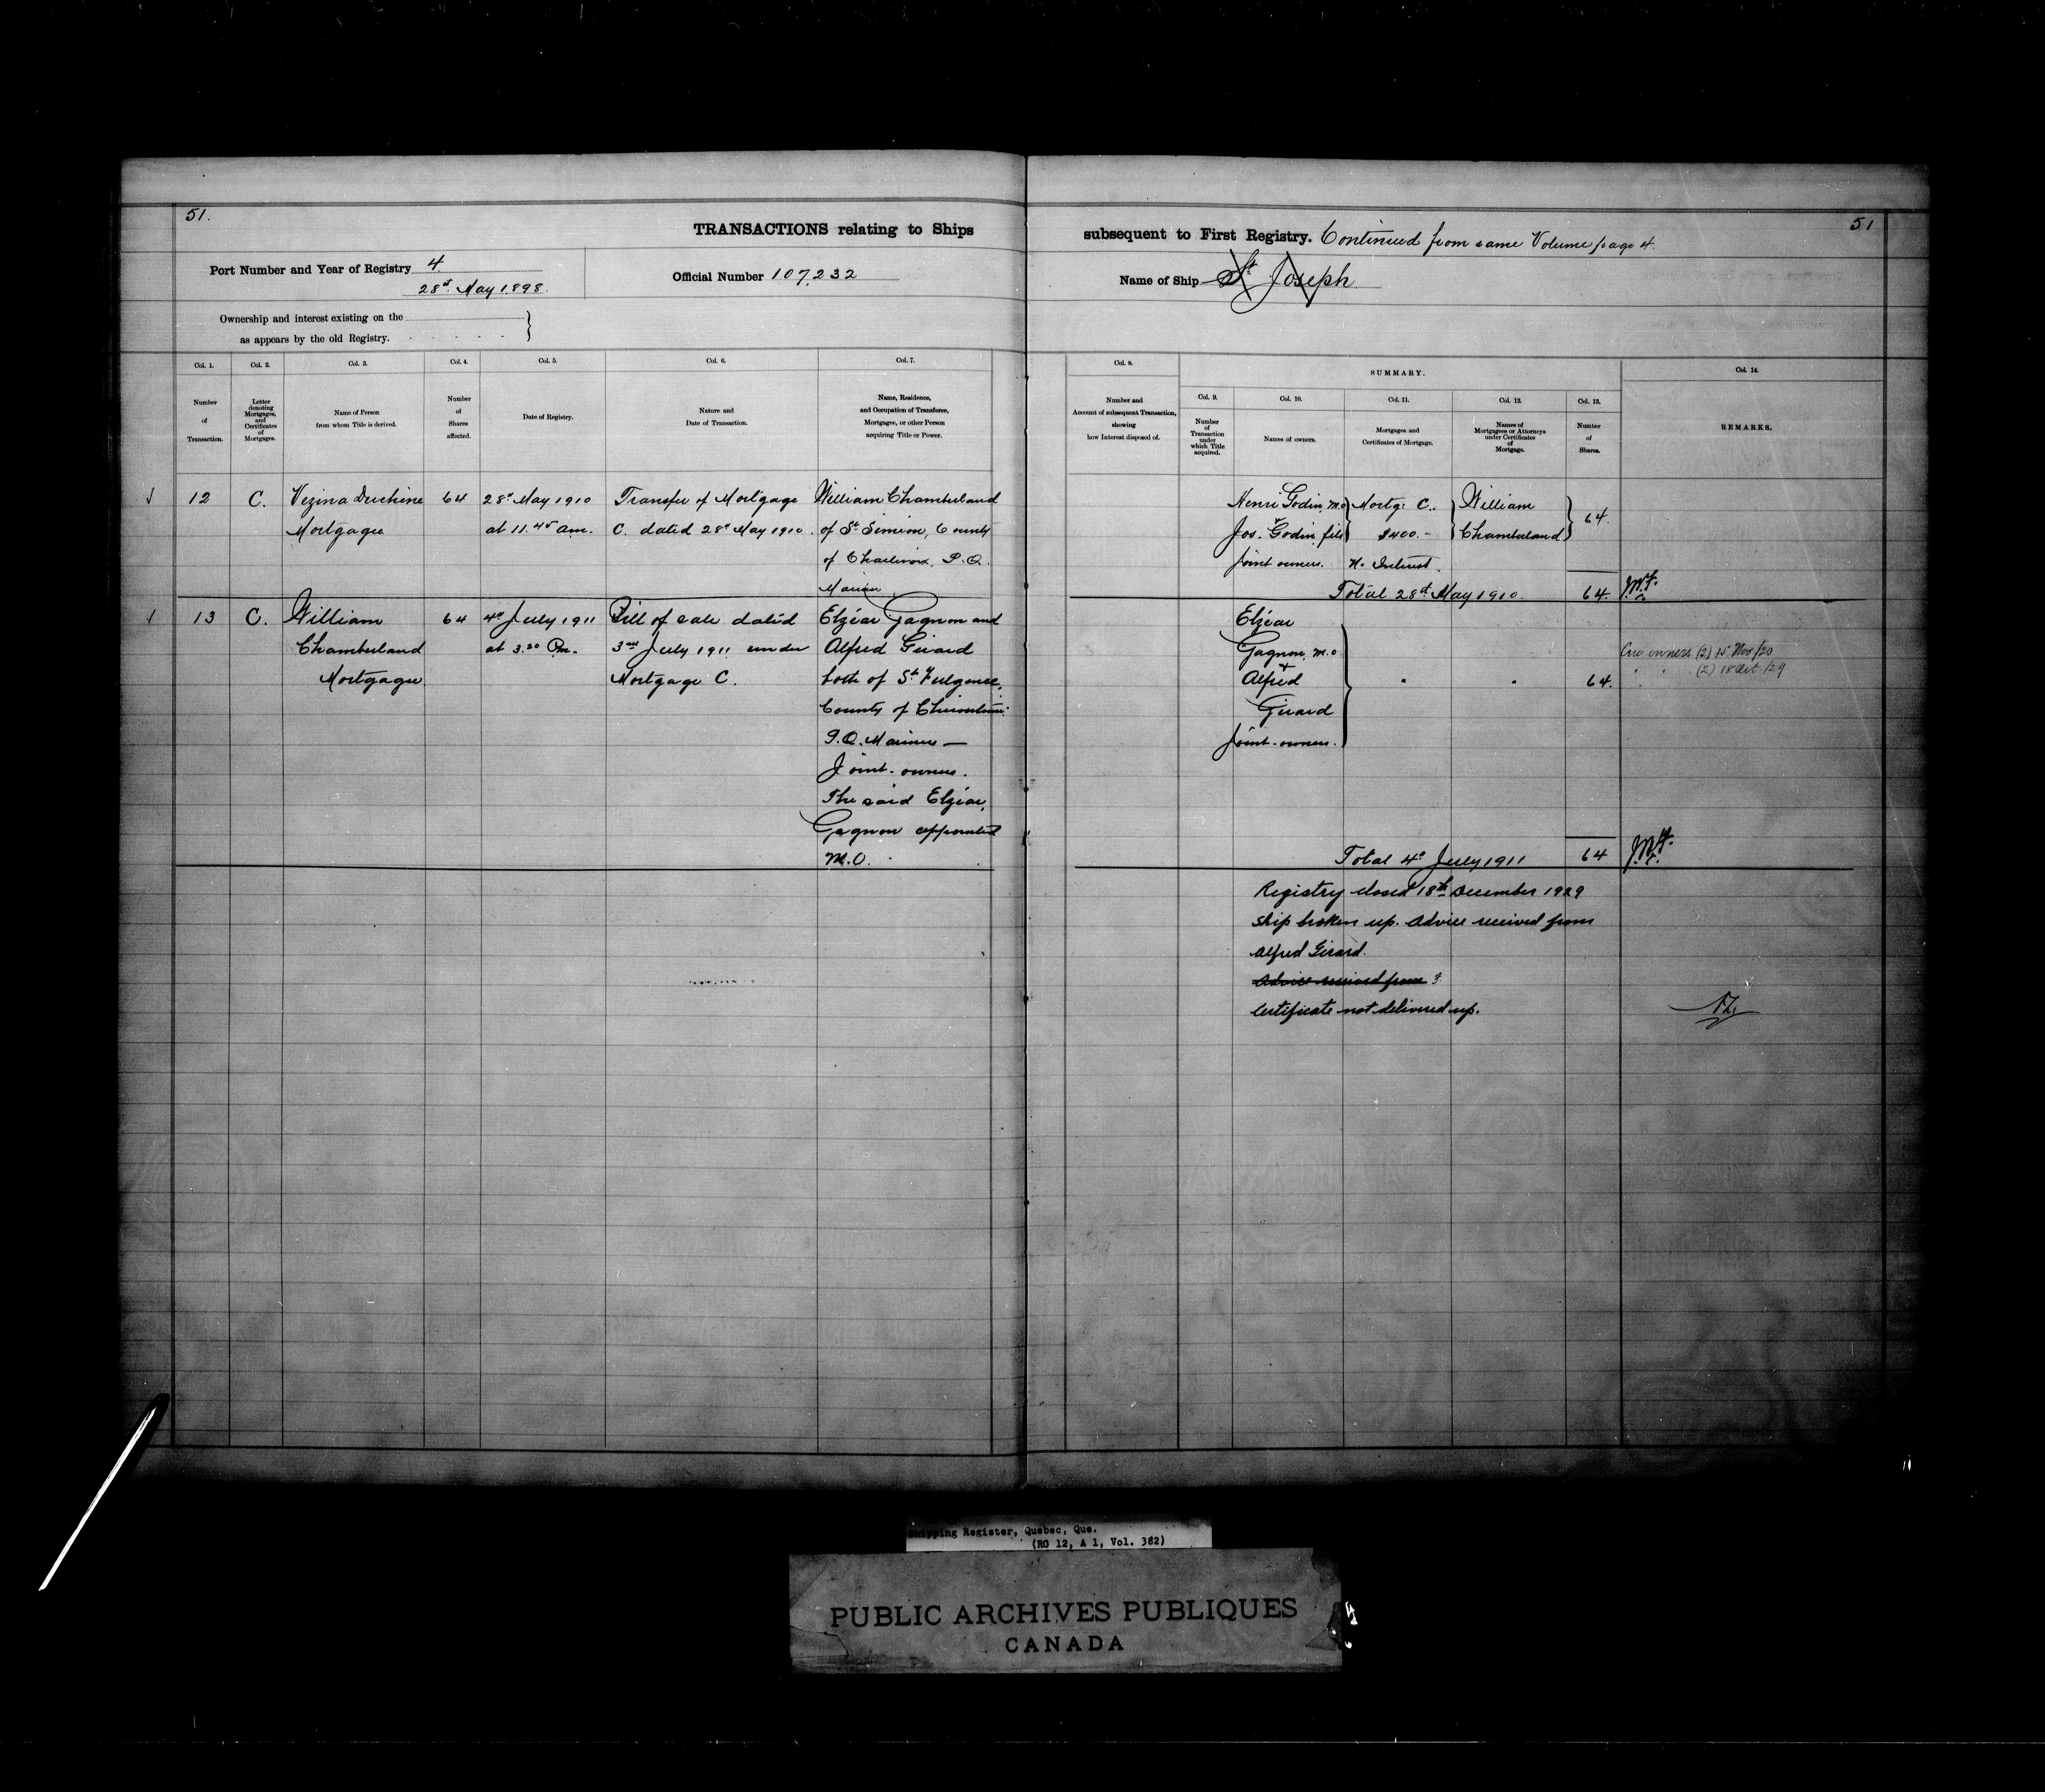 51.
TRANSACTIONS relating to Ships
Port Number and Year of Registry 4
28th May 1898.
Official Number 107,232
Ownership and interest existing on the
as appears by the old Registry.
Col. 1. Col. 2. Col. 3. Col. 4. Col. 5. Col. 6. Col. 7.
Number of Transaction.
Letter denoting Mortgages, and Certificates of Mortgages.
Name of Person from whom Title is derived.
Number of Shares affected.
Date of Registry.
Nature and Date of Transaction.
Name, Residence, and Occupation of Transferee, Mortgagee, or other Person acquiring Title or Power.
12 C. Vezina Duchine 64 28th May 1910 Transfer of Mortgage William Chamberland
Mortgagee at 11.45 am. C. dated 28th May 1910. of St Simeon, County
of Charlevoix, P.Q.
Mariner
13 C. William 64 4th July 1911 Bill of sale dated Elzéar Gagnon and
Chamberland at 3.20 Pm. 3rd July 1911 under Alfred Girard
Mortgagee. Mortgage C. both of St Fulgence,
County of Chicoutimi
P.Q. Mariners —
Joint-owners.
The said Elzéar
Gagnon appointed
M.O.
51
subsequent to First Registry. Continued from same Volume page 4.
Name of Ship St Joseph
Col. 8.
SUMMARY.
Col. 14.
Number and Account of subsequent Transaction, showing how Interest disposed of.
Col. 9. Col. 10. Col. 11. Col. 12. Col. 13.
Number of Transaction under which Title acquired.
Names of owners.
Mortgages and Certificates of Mortgage.
Names of Mortgagees or Attorneys under Certificates of Mortgage.
Number of Shares.
REMARKS.
Henri Godin, M.O Mortg: C.. William 64.
Jos. Godin, fils $400.- Chamberland
Joint owners. N. Interest.
Total 28th May 1910. 64.
Elzéar
Gagnon, M.O
&
Alfred 64.
Girard
Joint-owners.
owners (2) 15 Nov/20
" " (2) 18 Oct./29
Total 4th July 1911 64
Registry closed 18th December 1929
Ship broken up. Advice received from
Alfred Girard.
Advice received from
Certificate not delivered up.
Shipping Register, Quebec, Que.
(RG 12, A 1, Vol. 382)
PUBLIC ARCHIVES PUBLIQUES
CANADA